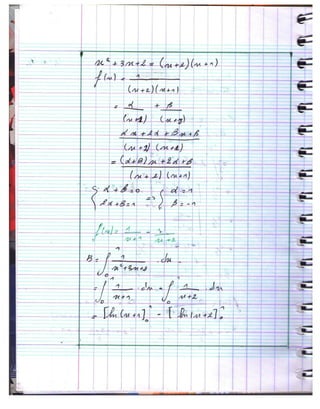 x² + 3x + 2 = (x+2)(x+1)
f(x) = 1
(x+2)(x+1)
= α + β
(x+1) (x+2)
αx + 2α + βx + β
(x+1) (x+2)
= (α+β)x + 2α + β
(x+2) (x+1)
{ α + β = 0 => { α = 1
2α + β = 1 β = -1
f(x) = 1/(x+1) - 1/(x+2)
B = ∫₀¹ 1/(x²+3x+2) dx
= ∫₀¹ 1/(x+1) dx - ∫₀¹ 1/(x+2) dx
= [ln(x+1)]₀¹ - [ln(x+2)]₀¹